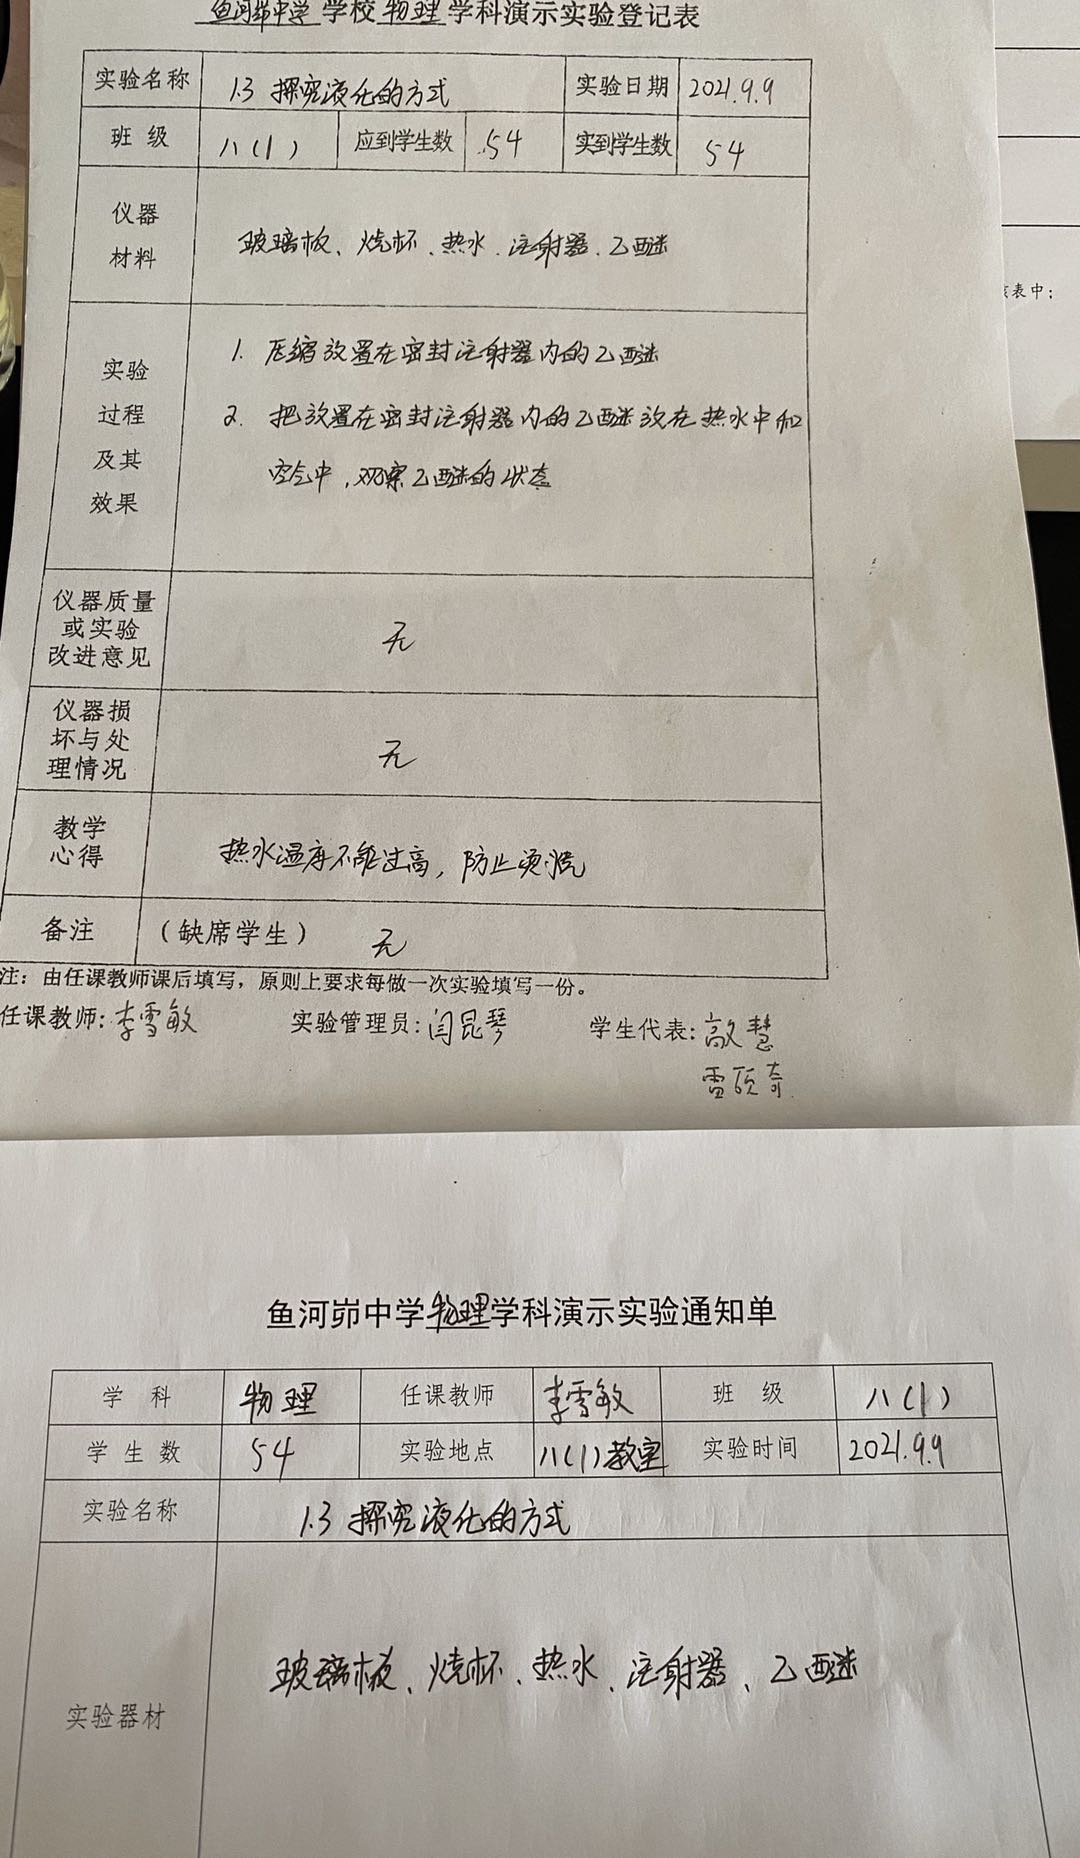 鱼河峁中学学校物理学科演示实验登记表
实验名称 1.3 探究液化的方式 实验日期 2021.9.9
班 级 八(1) 应到学生数 54 实到学生数 54
仪器
材料
玻璃板、烧杯、热水、注射器、乙醚
实验
过程
及其
效果
1. 压缩放置在密封注射器内的乙醚
2. 把放置在密封注射器内的乙醚放在热水中和
空气中,观察乙醚的状态
仪器质量
或实验
改进意见
无
仪器损
坏与处
理情况
无
教学
心得
热水温度不能过高,防止烫烧
备注 (缺席学生) 无
注:由任课教师课后填写,原则上要求每做一次实验填写一份。
任课教师:李雪敏 实验管理员:闫昆琴 学生代表:高慧
雷硕奇
表中;
鱼河峁中学物理学科演示实验通知单
学 科 物理 任课教师 李雪敏 班 级 八(1)
学 生 数 54 实验地点 八(1)教室 实验时间 2021.9.9
实验名称 1.3 探究液化的方式
实验器材 玻璃板、烧杯、热水、注射器、乙醚